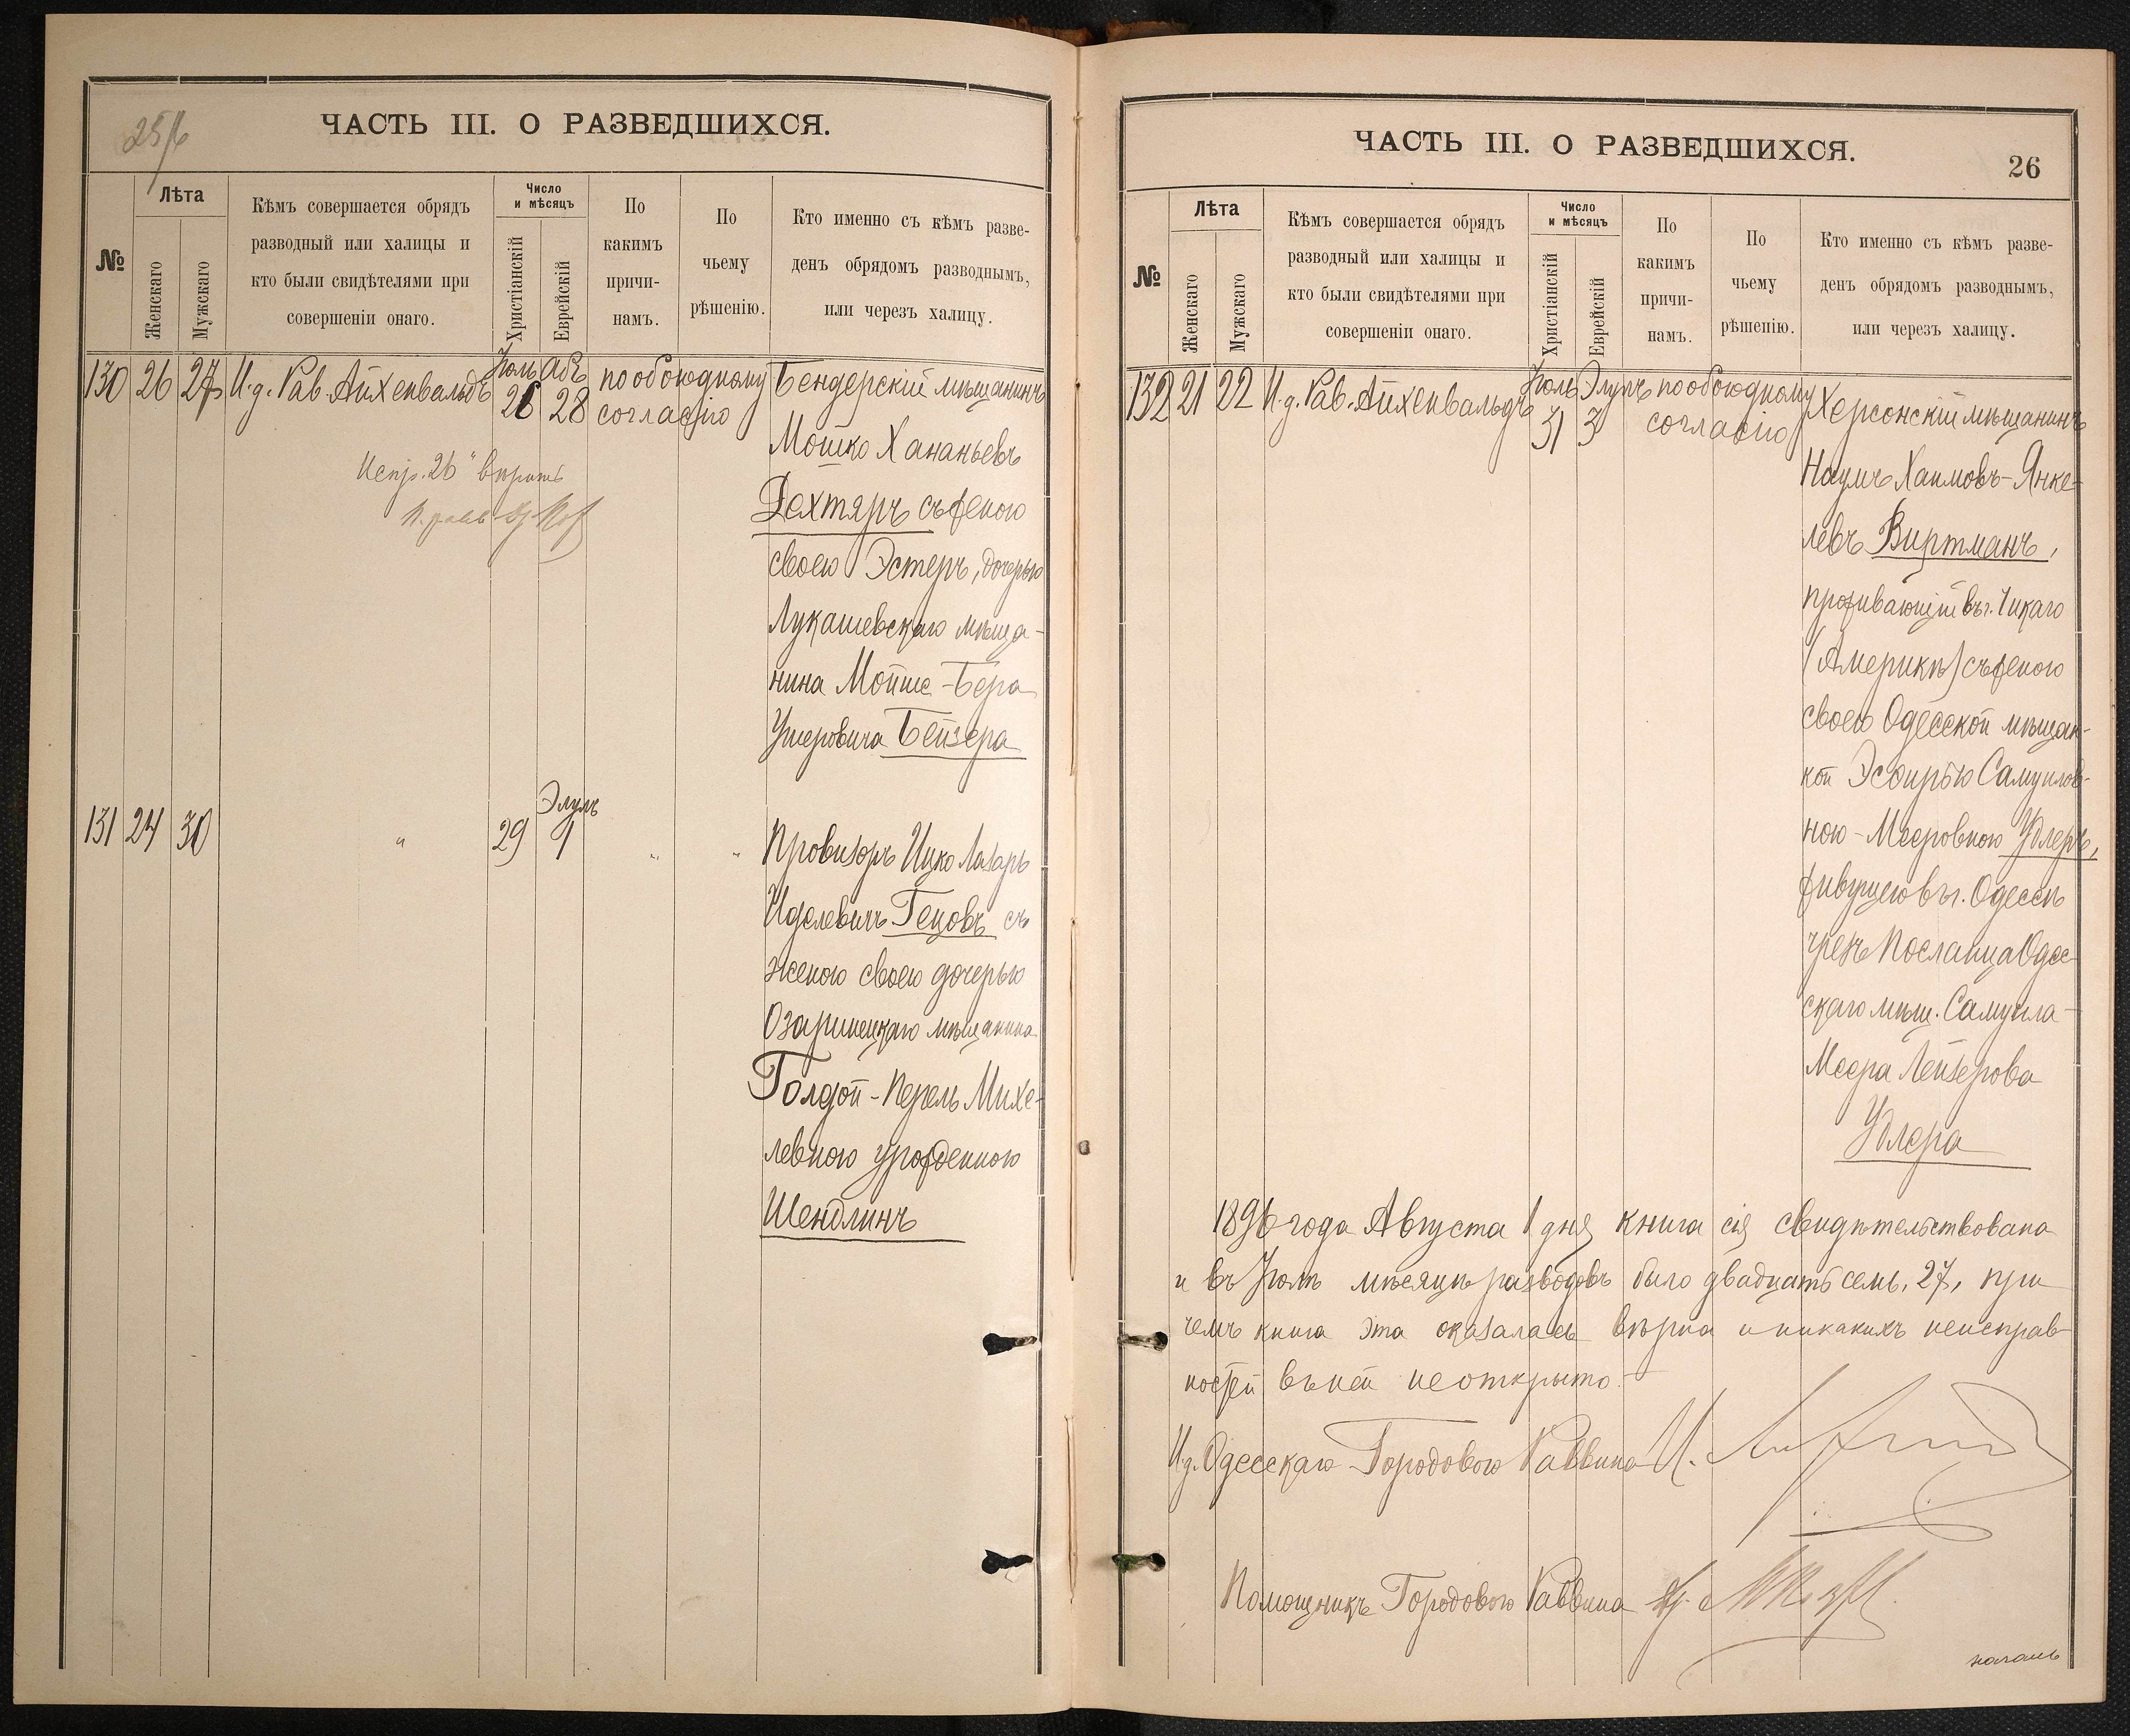 25/6
ЧАСТЬ III. О РАЗВЕДШИХСЯ.
№
Лѣта
Женскаго
Мужскаго
Кѣмъ совершается обрядъ
разводный или халицы и
кто были свидѣтелями при
совершеніи онаго.
Число
и мѣсяцъ
Христіанскій
Еврейскій
По
какимъ
причи-
намъ.
По
чьему
рѣшенію.
Кто именно съ кѣмъ разве-
денъ обрядомъ разводнымъ,
или черезъ халицу.
130 26 27 И.д. Рав. Айхенвальдъ
Іюль 26
Абъ 28
по обоюдному
согласію
Бендерскій мѣщанинъ
Мошко Хананьевъ
Дехтяръ съ женою
своею Эстеръ, дочерью
Лукашевскаго мѣща-
нина Мойше-Бера
Ушеровича Бейзера
Испр. "26" вѣрить
131 24 30 "
29
Элулъ
1
" "
Провизоръ Ицко Лазарь
Иделевичъ Гецовъ съ
женою своею дочерью
Озаринецкаго мѣщанина
Голдой-Перель Михе-
левною урожденною
Шендлинъ
ЧАСТЬ III. О РАЗВЕДШИХСЯ.
26
№
Лѣта
Женскаго
Мужскаго
Кѣмъ совершается обрядъ
разводный или халицы и
кто были свидѣтелями при
совершеніи онаго.
Число
и мѣсяцъ
Христіанскій
Еврейскій
По
какимъ
причи-
намъ.
По
чьему
рѣшенію.
Кто именно съ кѣмъ разве-
денъ обрядомъ разводнымъ,
или черезъ халицу.
132 21 22 И.д. Рав. Айхенвальдъ
Іюль 31
Элулъ 3
по обоюдному
согласію
Херсонскій мѣщанинъ
Наумъ Хаимовъ-Янке-
левъ Виртманъ,
проживающій въ г. Чикаго
(Америкѣ) съ женою
своею Одесской мѣщан-
кой Эсфирью Самуилов-
ною-Мееровною Удлеръ,
живущею въ г. Одессѣ
чрезъ посланца Одес-
скаго мѣщ. Самуила-
Меера Лейзерова
Удлера
1896 года Августа 1 дня книга сія свидѣтельствована
и въ Іюлѣ мѣсяцѣ разводовъ было двадцать семь, 27, при
чемъ книга эта оказалась вѣрна и никакихъ неисправ-
ностей въ ней не открыто.
И.д. Одесскаго Городового Раввина
Помощникъ Городового Раввина